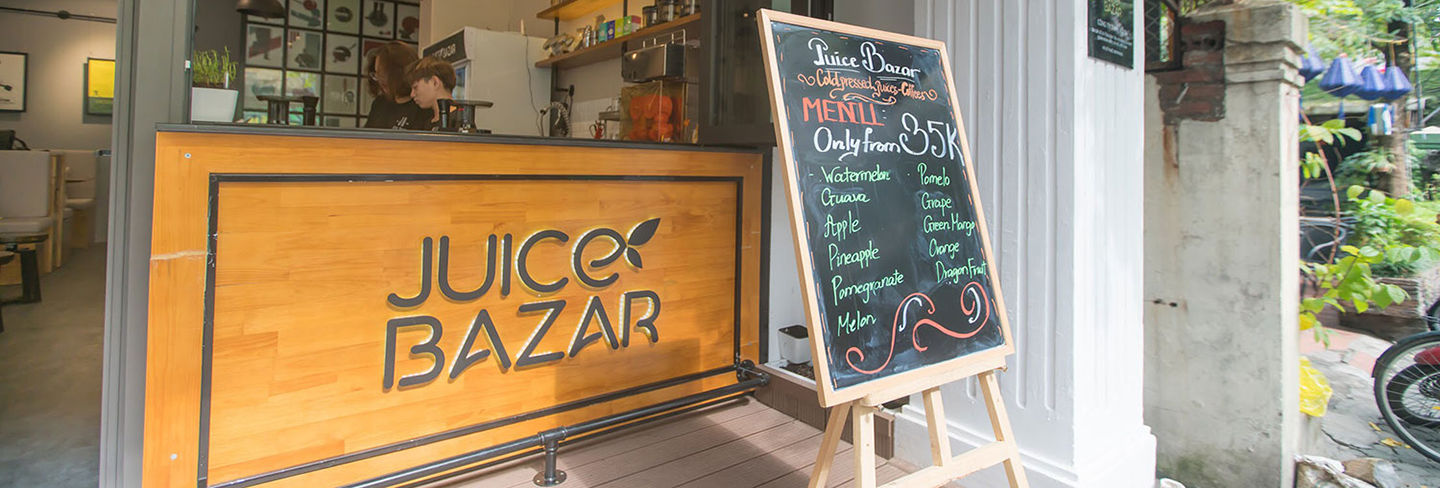 JUICE
BAZAR
Juice Bazar
Coldpressed Juices-Coffees
MENU
Only from 35K
- Watermelon
Guava
Apple
Pineapple
Pomegranate
Melon
- Pomelo
Grape
Green Mango
Orange
Dragon Fruit